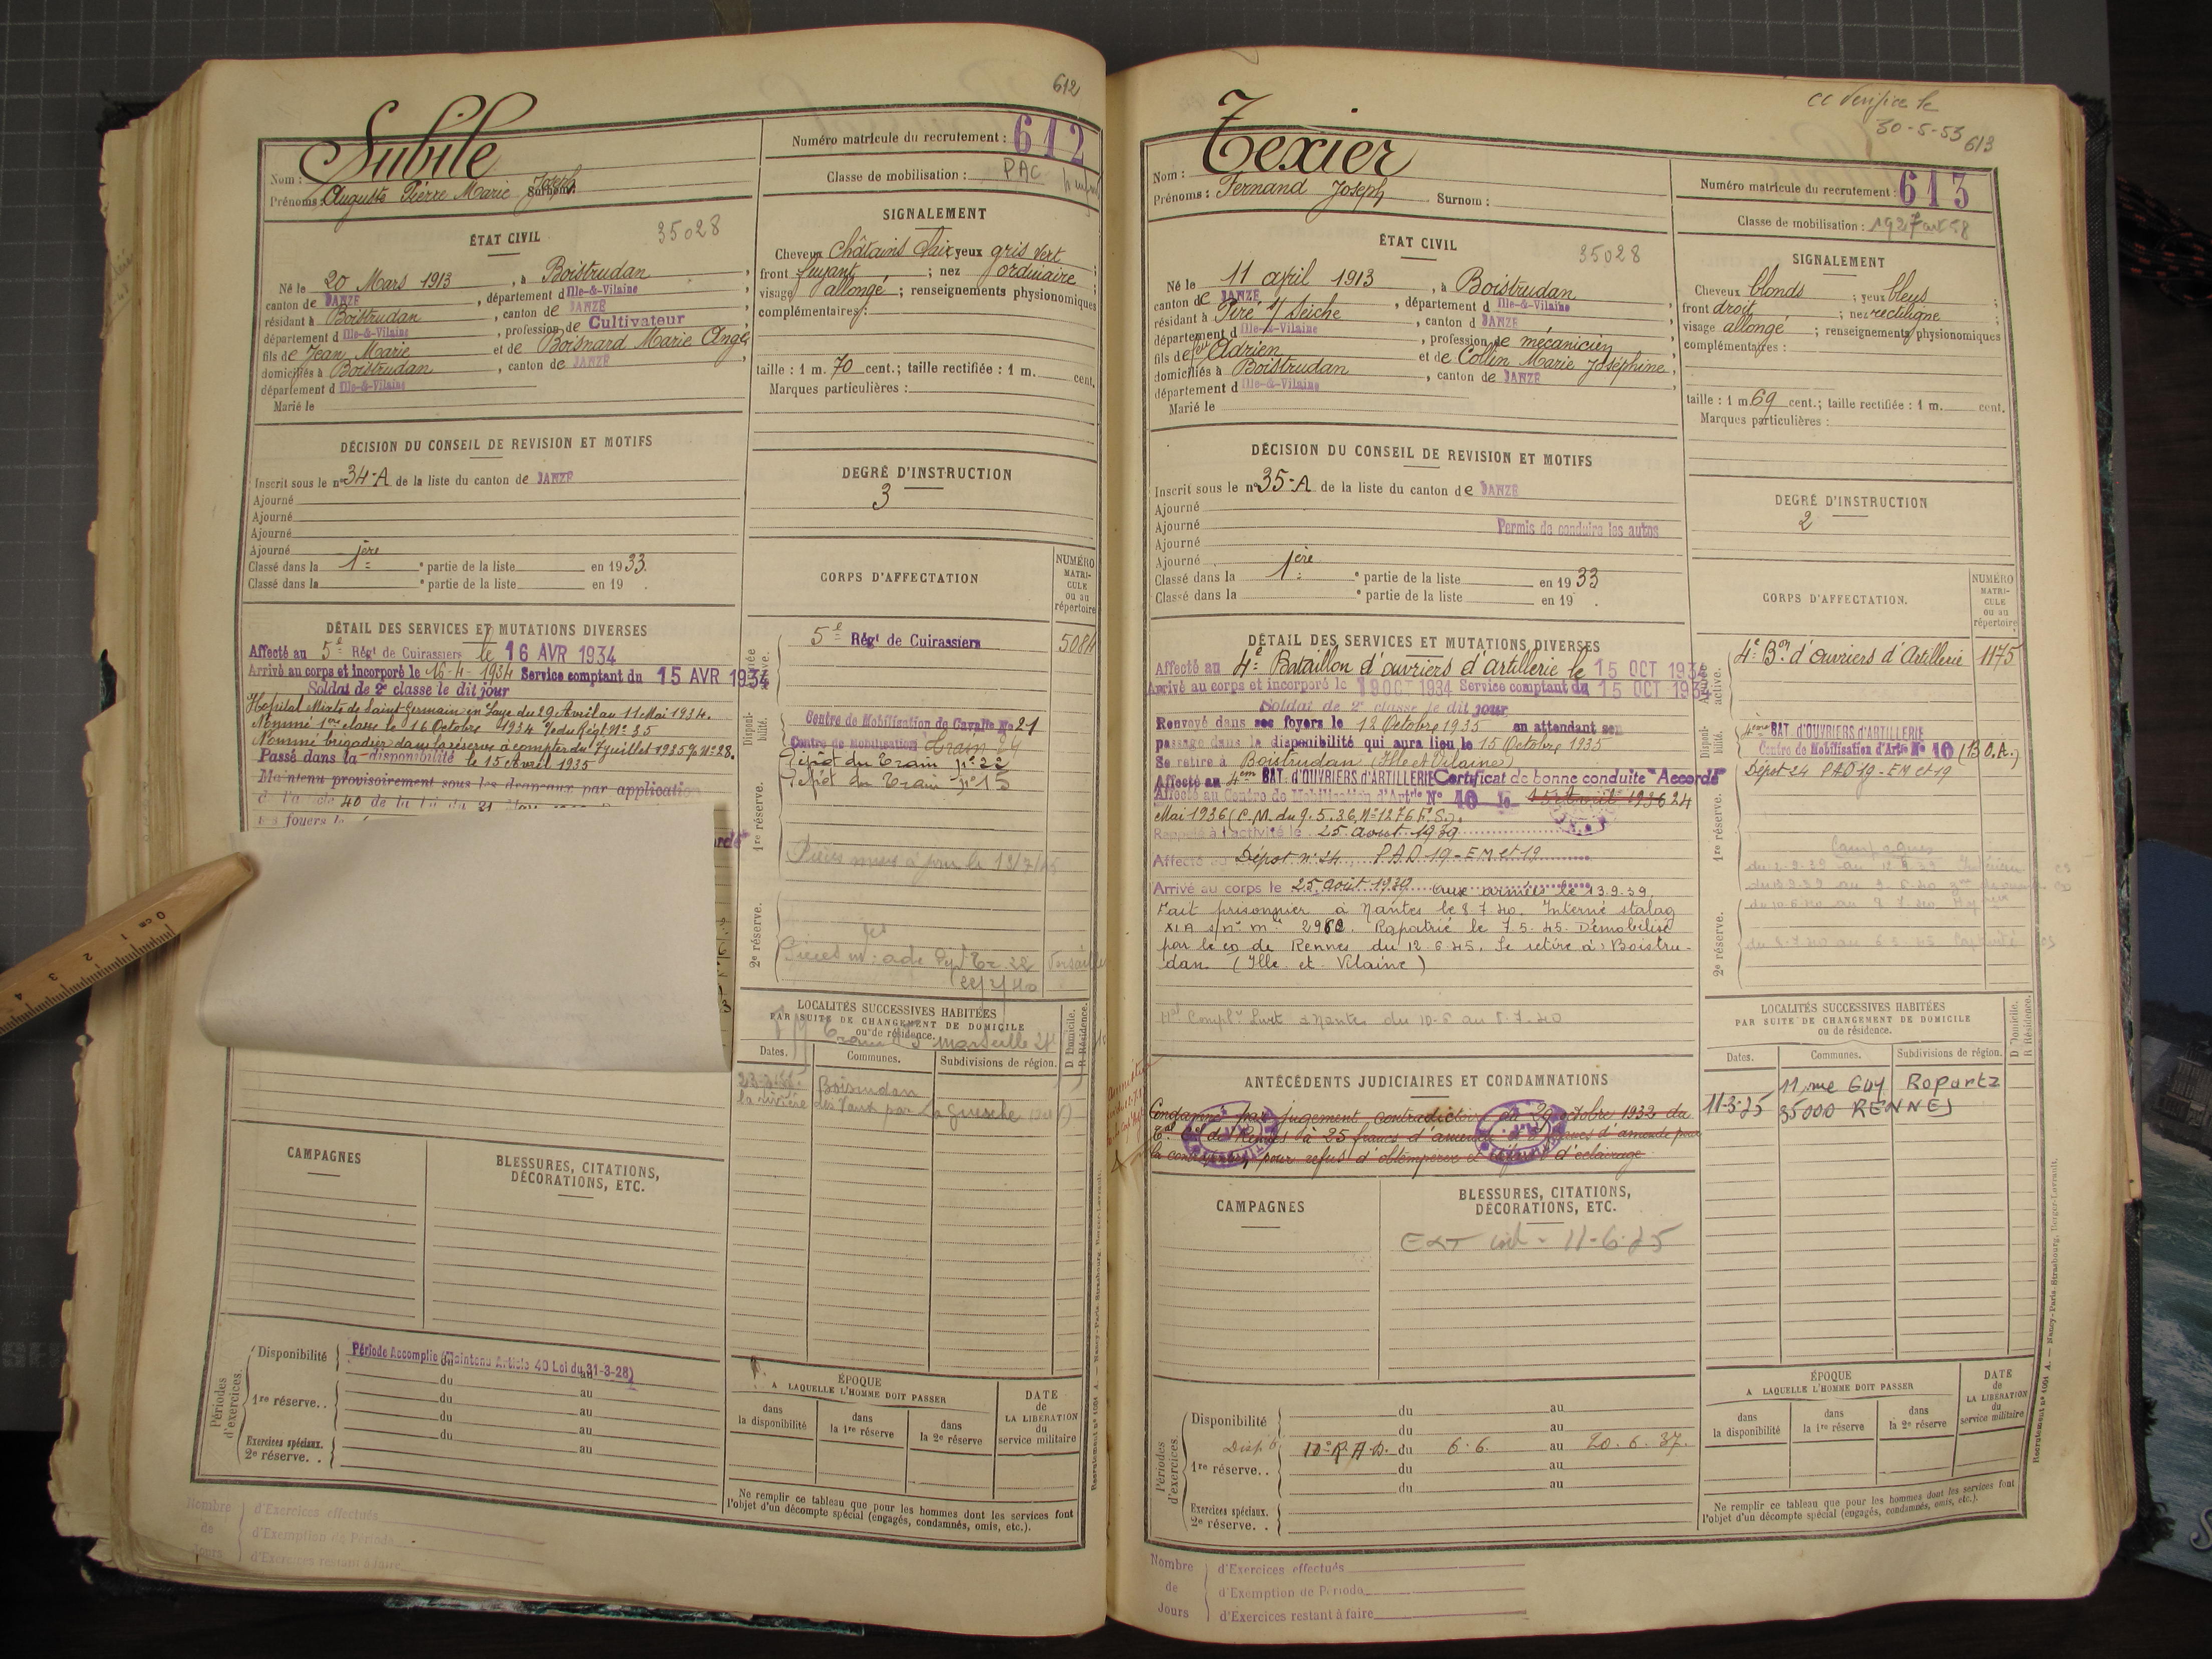 612
Subile
Nom :
Prénoms : Auguste Pierre Marie Joseph Surnom :
Numéro matricule du recrutement : 612
Classe de mobilisation : PAC
ÉTAT CIVIL
35028
Né le 20 Mars 1913, à Boistrudan,
canton de JANZÉ, département d Ille-&-Vilaine
résidant à Boistrudan, canton de JANZÉ
département d Ille-&-Vilaine, profession de Cultivateur
fils de Jean Marie et de Boisnard Marie Ange
domiciliés à Boistrudan, canton de JANZÉ
département d Ille-&-Vilaine
Marié le
SIGNALEMENT
Cheveux châtains clair yeux gris vert ;
front fuyant ; nez ordinaire ;
visage allongé ; renseignements physionomiques
complémentaires :
taille : 1 m. 70 cent.; taille rectifiée : 1 m. cent.
Marques particulières :
DÉCISION DU CONSEIL DE REVISION ET MOTIFS
Inscrit sous le n° 34-A de la liste du canton de JANZÉ
Ajourné
Ajourné
Ajourné
Ajourné
Classé dans la 1ère partie de la liste en 1933.
Classé dans la e partie de la liste en 19 .
DEGRÉ D'INSTRUCTION
3
DÉTAIL DES SERVICES ET MUTATIONS DIVERSES
Affecté au 5e Régt de Cuirassiers le 16 AVR 1934
Arrivé au corps et incorporé le 16-4-1934 Service comptant du 15 AVR 1934
Soldat de 2e classe le dit jour
Hôpital Mixte de Saint Germain en Laye du 29 Avril au 11 Mai 1934.
Nommé 1ère classe le 16 Octobre 1934 du Régt N° 35
Nommé brigadier dans la réserve à compter du 7 juillet 1935 N° 28.
Passé dans la disponibilité le 15 Avril 1935
Maintenu provisoirement sous les drapeaux par application
de l'article 40 de la loi du 31
CORPS D'AFFECTATION
NUMÉRO MATRICULE ou au répertoire
5e Régt de Cuirassiers 5084
Centre de Mobilisation de Cavalie N° 21
Centre de Mobilisation Train
Dépôt du Train n° 22
Dépôt du Train n° 15
Disponibilité.
1re réserve.
2e réserve.
LOCALITÉS SUCCESSIVES HABITÉES
PAR SUITE DE CHANGEMENT DE DOMICILE
ou de résidence.
Dates.
Communes.
Subdivisions de région.
D Domicile.
R Résidence.
CAMPAGNES
BLESSURES, CITATIONS,
DÉCORATIONS, ETC.
Périodes d'exercices.
Disponibilité
Période Accomplie (Maintenu Article 40 Loi du 31-3-28)
du au
1re réserve. .
du au
du au
Exercices spéciaux.
du au
2e réserve. .
ÉPOQUE
A LAQUELLE L'HOMME DOIT PASSER
dans la disponibilité
dans la 1re réserve
dans la 2e réserve
DATE de LA LIBÉRATION du service militaire
Ne remplir ce tableau que pour les hommes dont les services font
l'objet d'un décompte spécial (engagés, condamnés, omis, etc.).
Nombre de Jours
d'Exercices effectués
d'Exemption de Période
d'Exercices restant à faire
CC Vérifiée le
30-5-53
613
Texier
Nom :
Prénoms : Fernand Joseph Surnom :
Numéro matricule du recrutement : 613
Classe de mobilisation : 1927
ÉTAT CIVIL
35028
Né le 11 april 1913, à Boistrudan,
canton de JANZÉ, département d Ille-&-Vilaine
résidant à Piré s/ Seiche, canton d JANZÉ
département d Ille-&-Vilaine, profession de mécanicien
fils de feu Adrien et de Collin Marie Joséphine,
domiciliés à Boistrudan, canton de JANZÉ
département d Ille-&-Vilaine
Marié le
SIGNALEMENT
Cheveux blonds ; yeux bleus ;
front droit ; nez rectiligne ;
visage allongé ; renseignements physionomiques
complémentaires :
taille : 1 m 69 cent.; taille rectifiée : 1 m. cent.
Marques particulières :
DÉCISION DU CONSEIL DE REVISION ET MOTIFS
Inscrit sous le n° 35-A de la liste du canton de JANZÉ
Ajourné
Ajourné
Permis de conduire les autos
Ajourné
Ajourné
Classé dans la 1ère partie de la liste en 1933
Classé dans la e partie de la liste en 19 .
DEGRÉ D'INSTRUCTION
2
DÉTAIL DES SERVICES ET MUTATIONS DIVERSES
Affecté au 4e Bataillon d'ouvriers d'artillerie le 15 OCT 1934
Arrivé au corps et incorporé le 19 OCT 1934 Service comptant du 15 OCT 1934
Soldat de 2e classe le dit jour
Renvoyé dans ses foyers le 12 Octobre 1935 en attendant son
passage dans la disponibilité qui aura lieu le 15 Octobre 1935
Se retire à Boistrudan (Ille et Vilaine)
Affecté au 4em BAT. d'OUVRIERS d'ARTILLERIE Certificat de bonne conduite "Accordé"
Affecté au Centre de Mobilisation d'Artie N° 10 le 15 Avril 1936 24
Mai 1936 (C.M. du 9.5.36, N° 1276 F.S.).
Rappelé à l'activité le 25 août 1939
Affecté au Dépôt n° 24, PAD 19-EM et 19
Arrivé au corps le 25 août 1939 Aux armées le 13.9.39.
Fait prisonnier à Nantes le 8.7.40. Interné stalag
XIA s/n° m° 2962. Rapatrié le 7.5.45. Démobilisé
par le CD de Rennes du 12.6.45. Se retire à Boistru-
dan (Ille et Vilaine)
Nantes du 10-6 au 8-7-40
CORPS D'AFFECTATION.
NUMÉRO MATRICULE ou au répertoire
4e Bon d'Ouvriers d'Artillerie 1175
4ème BAT. D'OUVRIERS D'ARTILLERIE
Centre de Mobilisation d'Artie N° 10 (B.O.A.)
Dépôt 24 PAD 19-EM et 19
Armée active.
Disponibilité.
1re réserve.
2e réserve.
Campagnes
LOCALITÉS SUCCESSIVES HABITÉES
PAR SUITE DE CHANGEMENT DE DOMICILE
ou de résidence.
Dates.
Communes.
Subdivisions de région.
D Domicile.
R Résidence.
11 rue Guy Ropartz
11-3-75 35000 RENNES
ANTÉCÉDENTS JUDICIAIRES ET CONDAMNATIONS
Condamné par jugement contradictoire du 29 octobre 1932 du
de Rennes à 25 francs d'amende francs d'amende pour
la contravention, pour refus d'obtempérer et défaut d'éclairage
CAMPAGNES
BLESSURES, CITATIONS,
DÉCORATIONS, ETC.
Périodes d'exercices.
Disponibilité
du au
du au
Dispé 10e R.A.D. du 6.6. au 20.6.37.
1re réserve. .
du au
du au
Exercices spéciaux.
2e réserve. .
ÉPOQUE
A LAQUELLE L'HOMME DOIT PASSER
dans la disponibilité
dans la 1re réserve
dans la 2e réserve
DATE de LA LIBÉRATION du service militaire
Ne remplir ce tableau que pour les hommes dont les services font
l'objet d'un décompte spécial (engagés, condamnés, omis, etc.).
Nombre de Jours
d'Exercices effectués
d'Exemption de Période
d'Exercices restant à faire